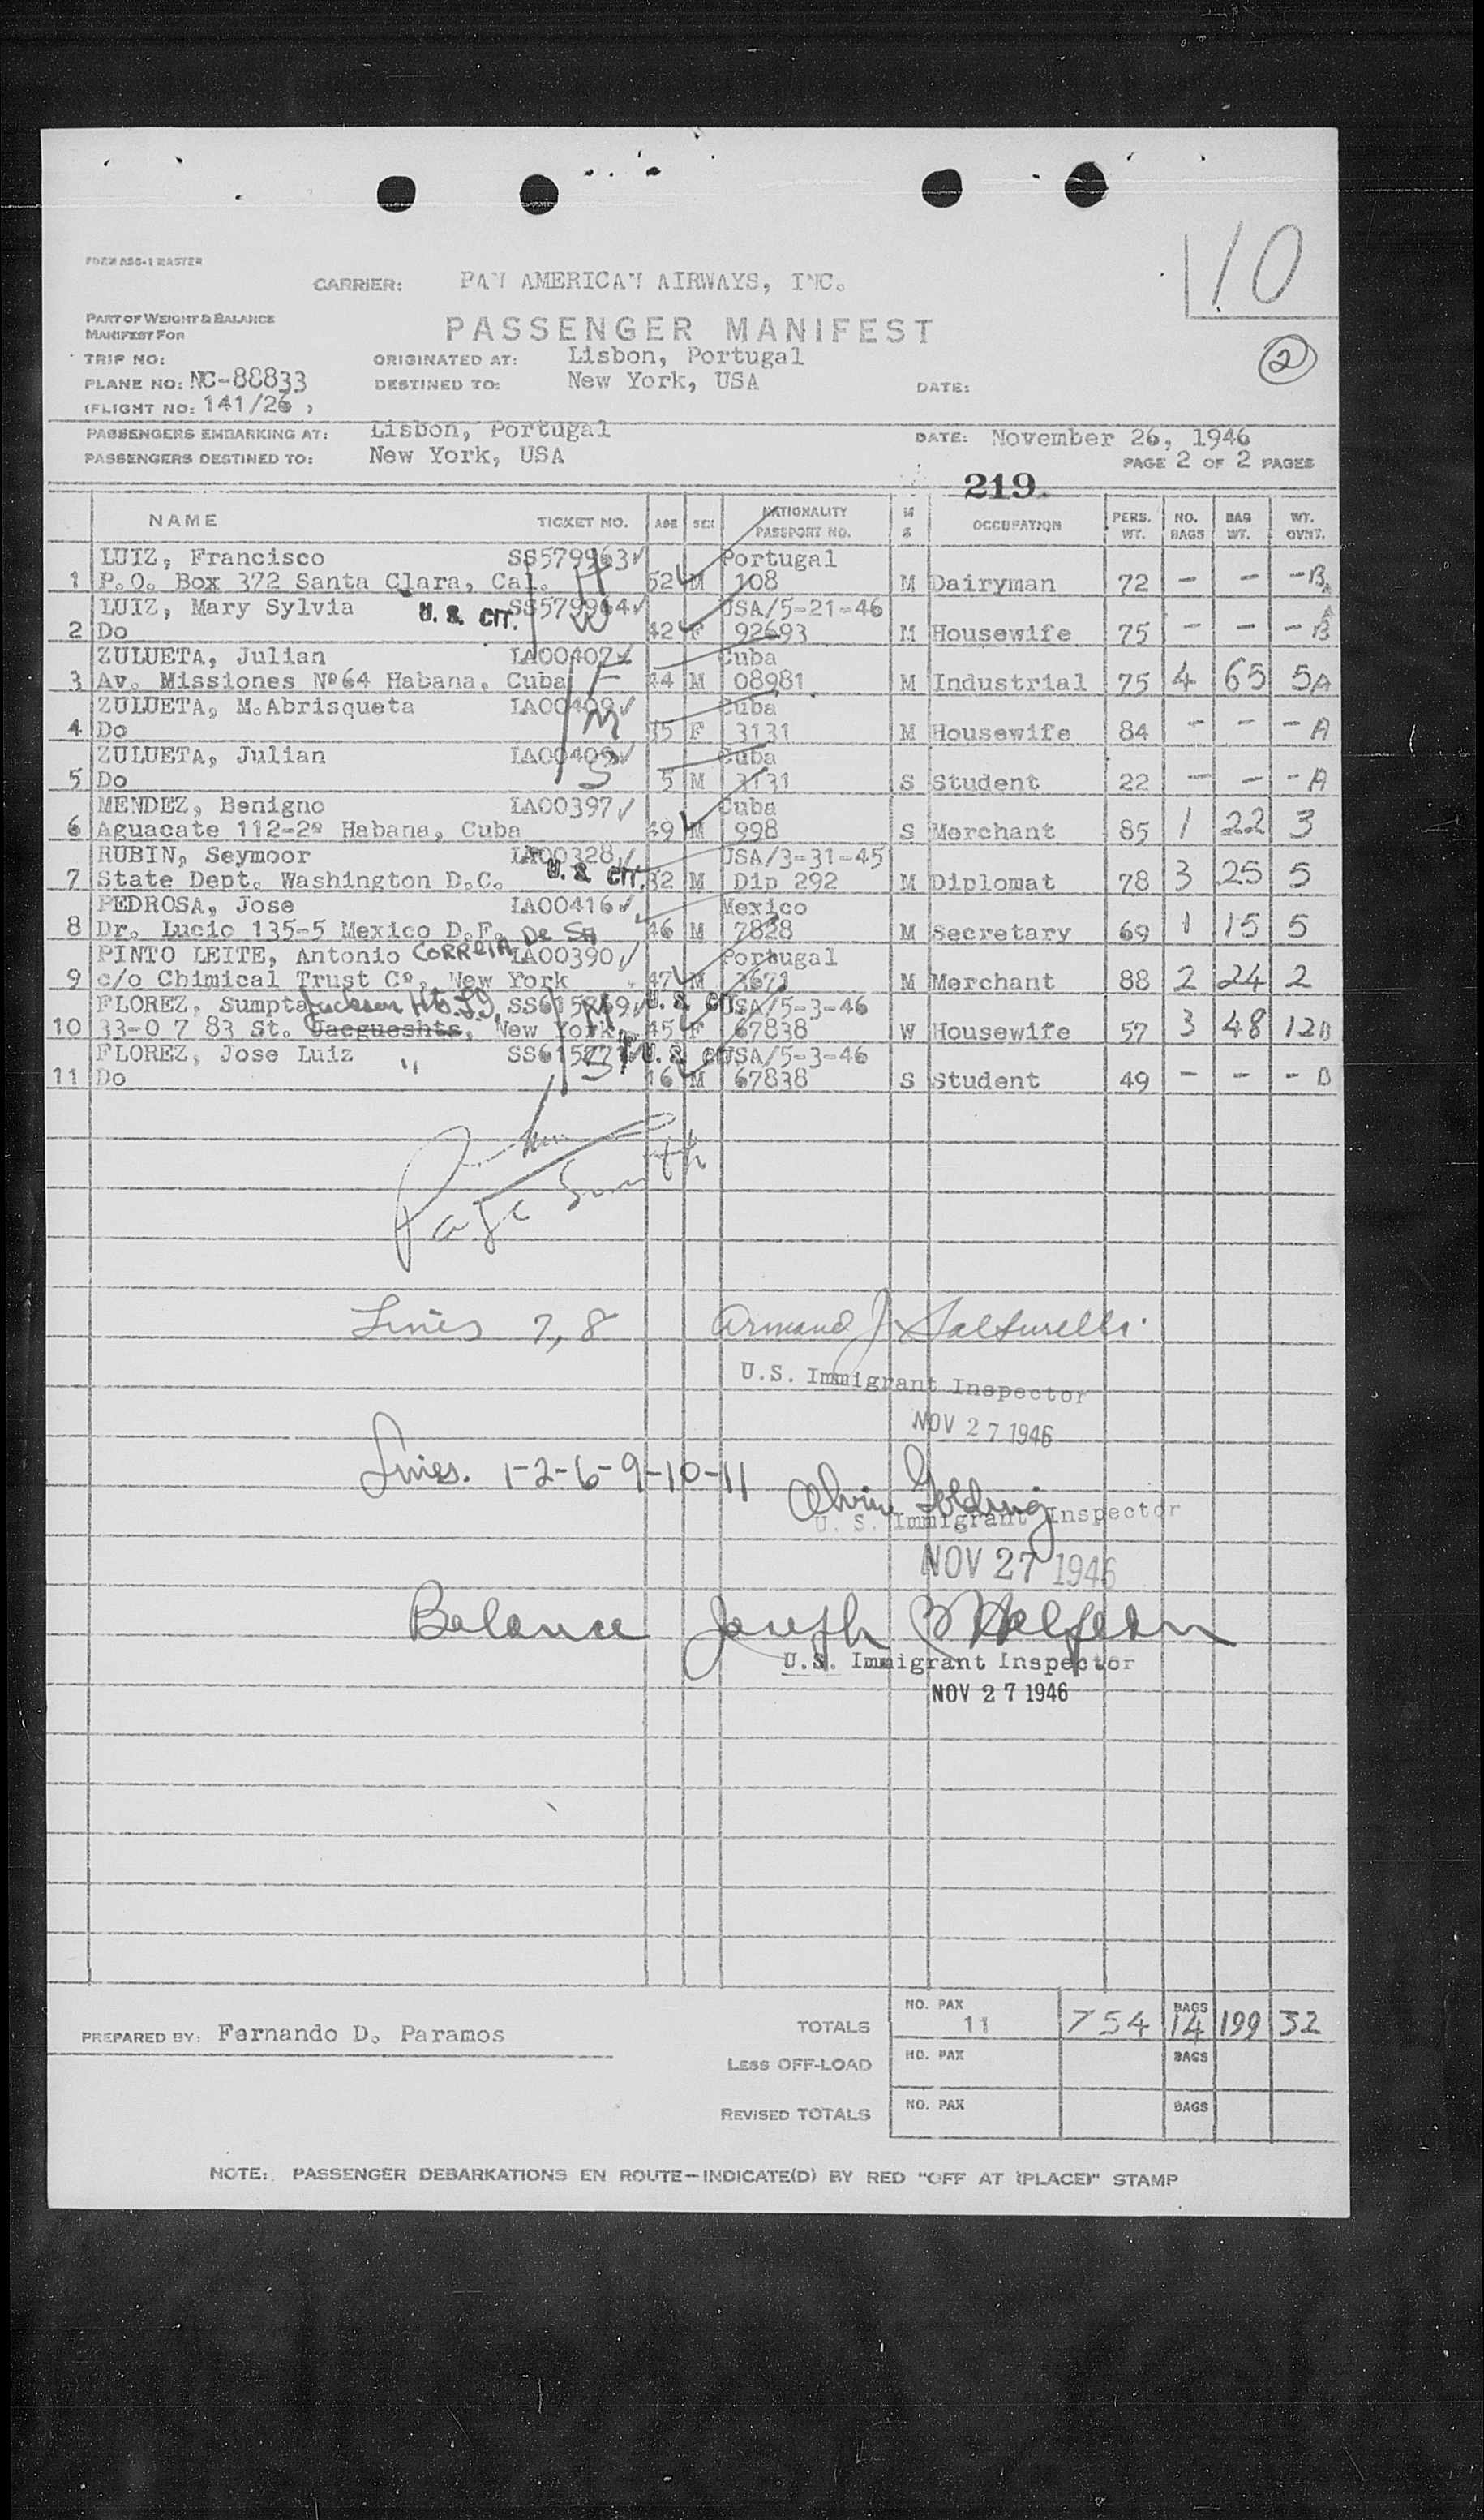 FORM ASC-1 MASTER
10
CARRIER: PAN AMERICAN AIRWAYS, INC.
PART OF WEIGHT & BALANCE
MANIFEST FOR
PASSENGER MANIFEST
2
TRIP NO: ORIGINATED AT: Lisbon, Portugal
PLANE NO: NC-88833 DESTINED TO: New York, USA DATE:
(FLIGHT NO: 141/26 )
PASSENGERS EMBARKING AT: Lisbon, Portugal DATE: November 26, 1946
PASSENGERS DESTINED TO: New York, USA PAGE 2 OF 2 PAGES
219.
NAME TICKET NO. AGE SEX NATIONALITY PASSPORT NO. M S OCCUPATION PERS. WT. NO. BAGS BAG WT. WT. OVWT.
LUIZ, Francisco SS579963 Portugal
1 P.O. Box 372 Santa Clara, Cal. H 52 M 108 M Dairyman 72 - - - B
LUIZ, Mary Sylvia U. S. CIT. SS579964 USA/5-21-46
2 Do W 42 F 92693 M Housewife 75 - - - B
ZULUETA, Julian LA00407 Cuba
3 Av. Missiones Nº64 Habana, Cuba F 44 M 08981 M Industrial 75 4 65 5A
ZULUETA, M.Abrisqueta LA00409 Cuba
4 Do M 35 F 3131 M Housewife 84 - - - A
ZULUETA, Julian LA00409 Cuba
5 Do S 5 M 3131 S Student 22 - - - A
MENDEZ, Benigno LA00397 Cuba
6 Aguacate 112-2º Habana, Cuba 49 M 998 S Merchant 85 1 22 3
RUBIN, Seymoor LA00328 USA/3-31-45
7 State Dept. Washington D.C. U. S. CIT. 32 M Dip 292 M Diplomat 78 3 25 5
PEDROSA, Jose LA00416 Mexico
8 Dr. Lucio 135-5 Mexico D.F. 46 M 7828 M Secretary 69 1 15 5
PINTO LEITE, Antonio CORREIA De SA LA00390 Portugal
9 c/o Chimical Trust Cº, New York 47 M 3671 M Merchant 88 2 24 2
FLOREZ, Sumpta Jackson Hts. L.I. U. S. CIT. USA/5-3-46
10 33-0 7 83 St. Jacgueshts, New York 45 F 67838 W Housewife 57 3 48 12B
FLOREZ, Jose Luiz " U. S. CIT. USA/5-3-46
11 Do S 16 M 67838 S Student 49 - - - B
Page Smith
Lines 7, 8 Armand J.
U.S. Immigrant Inspector
NOV 27 1946
Lines. 1-2-6-9-10-11 Golding
U. S. Immigrant Inspector
NOV 27 1946
Balance Joseph
U.S. Immigrant Inspector
NOV 27 1946
PREPARED BY: Fernando D. Paramos TOTALS NO. PAX 11 754 BAGS 14 199 32
LESS OFF-LOAD NO. PAX BAGS
REVISED TOTALS NO. PAX BAGS
NOTE: PASSENGER DEBARKATIONS EN ROUTE—INDICATE(D) BY RED "OFF AT (PLACE)" STAMP